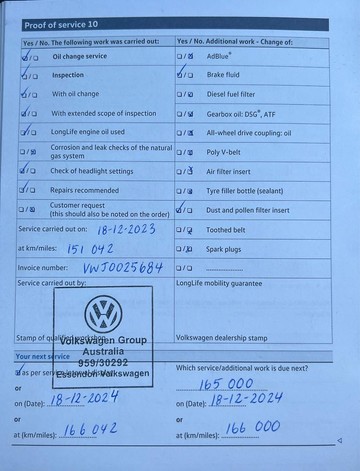 Proof of service 10
Yes / No. The following work was carried out:
Yes / No. Additional work - Change of:
Oil change service
AdBlue®
Inspection
Brake fluid
With oil change
Diesel fuel filter
With extended scope of inspection
Gearbox oil: DSG®, ATF
LongLife engine oil used
All-wheel drive coupling: oil
Corrosion and leak checks of the natural
gas system
Poly V-belt
Check of headlight settings
Air filter insert
Repairs recommended
Tyre filler bottle (sealant)
Customer request
(this should also be noted on the order)
Dust and pollen filter insert
Service carried out on: 18-12-2023
Toothed belt
at km/miles: 151 042
Spark plugs
Invoice number: VWJ0025684
Service carried out by:
LongLife mobility guarantee
Stamp of qualified
Volkswagen Group
Australia
959/30292
Essendon Volkswagen
Volkswagen dealership stamp
Your next service
as per service
Which service/additional work is due next?
165 000
or
on (Date): 18-12-2024
on (Date): 18-12-2024
or
or
at (km/miles): 166 042
at (km/miles): 166 000